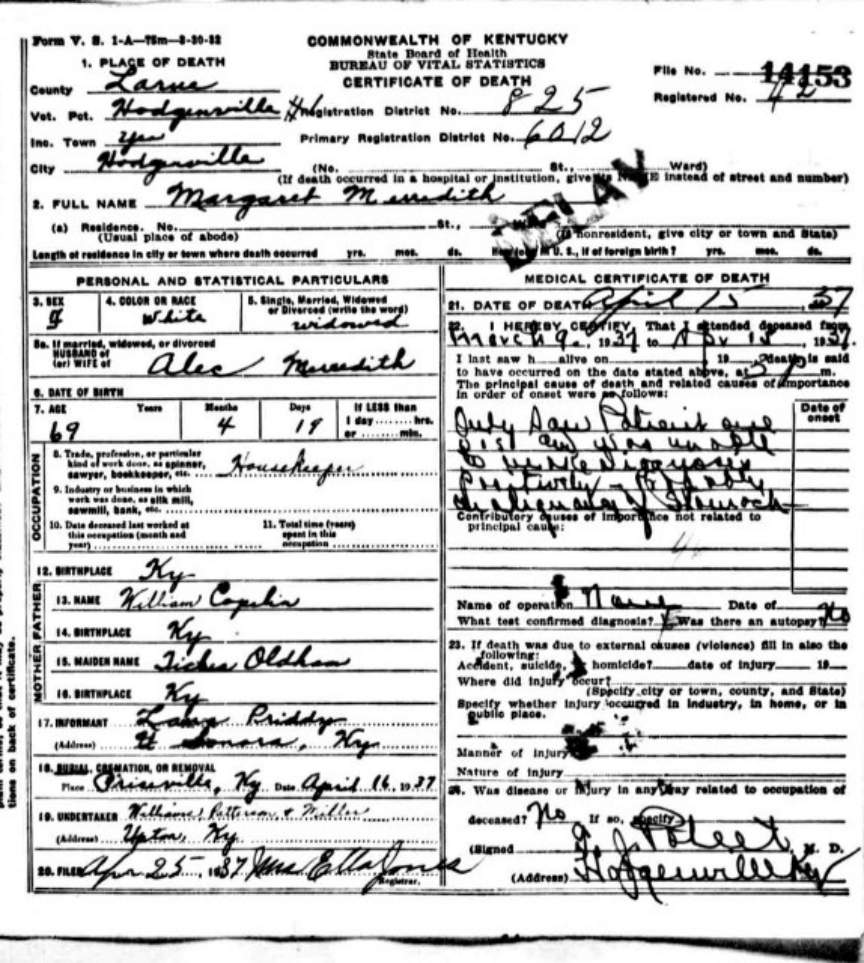 Form V. S. 1-A—75m—8-20-32
COMMONWEALTH OF KENTUCKY
State Board of Health
BUREAU OF VITAL STATISTICS
CERTIFICATE OF DEATH
File No. 14153
Registered No. 42
1. PLACE OF DEATH
County Larue
Vot. Pct. Hodgenville #1 Registration District No. 825
Inc. Town yes Primary Registration District No. 6012
City Hodgenville (No. St., Ward)
(If death occurred in a hospital or institution, give its NAME instead of street and number)
DELAY
2. FULL NAME Margaret Merredith
(a) Residence. No. St.,
(Usual place of abode) (If nonresident, give city or town and State)
Length of residence in city or town where death occurred yrs. mos. ds. How long in U. S., if of foreign birth? yrs. mos. ds.
PERSONAL AND STATISTICAL PARTICULARS
3. SEX 4. COLOR OR RACE 5. Single, Married, Widowed
or Divorced (write the word)
F White widowed
5a. If married, widowed, or divorced
HUSBAND of
(or) WIFE of Alec Meredith
6. DATE OF BIRTH
7. AGE Years Months Days If LESS than
1 day hrs.
or min.
69 4 19
OCCUPATION
8. Trade, profession, or particular
kind of work done, as spinner,
sawyer, bookkeeper, etc. Housekeeper
9. Industry or business in which
work was done, as silk mill,
sawmill, bank, etc.
10. Date deceased last worked at
this occupation (month and
year)
11. Total time (years)
spent in this
occupation
12. BIRTHPLACE Ky
FATHER
13. NAME William Copelin
14. BIRTHPLACE Ky
MOTHER
15. MAIDEN NAME Oldham
16. BIRTHPLACE Ky
17. INFORMANT Priddy
(Address) Sonora, Ky
18. BURIAL, CREMATION, OR REMOVAL
Place Ky Date April 16, 1937
19. UNDERTAKER Williams, Patterson & Miller
(Address) Upton, Ky
20. FILED Apr 25, 1937 Mrs Ella Jones
Registrar.
MEDICAL CERTIFICATE OF DEATH
21. DATE OF DEATH April 15 37
22. I HEREBY CERTIFY, That I attended deceased from
March 9, 1937 to 1937.
I last saw h alive on 19 death is said
to have occurred on the date stated above, at m.
The principal cause of death and related causes of importance
in order of onset were as follows:
Date of
onset
Only saw Patient one
and was unable
to make Diagnosis
Positively - Probably
Malignancy of Stomach
Contributory causes of importance not related to
principal cause:
46
Name of operation None Date of
What test confirmed diagnosis? Was there an autopsy? No
23. If death was due to external causes (violence) fill in also the
following:
Accident, suicide, homicide? date of injury 19
Where did injury occur?
(Specify city or town, county, and State)
Specify whether injury occurred in industry, in home, or in
public place.
Manner of injury
Nature of injury
24. Was disease or injury in any way related to occupation of
deceased? No If so, specify
(Signed M. D.
(Address) Hodgenville Ky
tions on back of certificate.